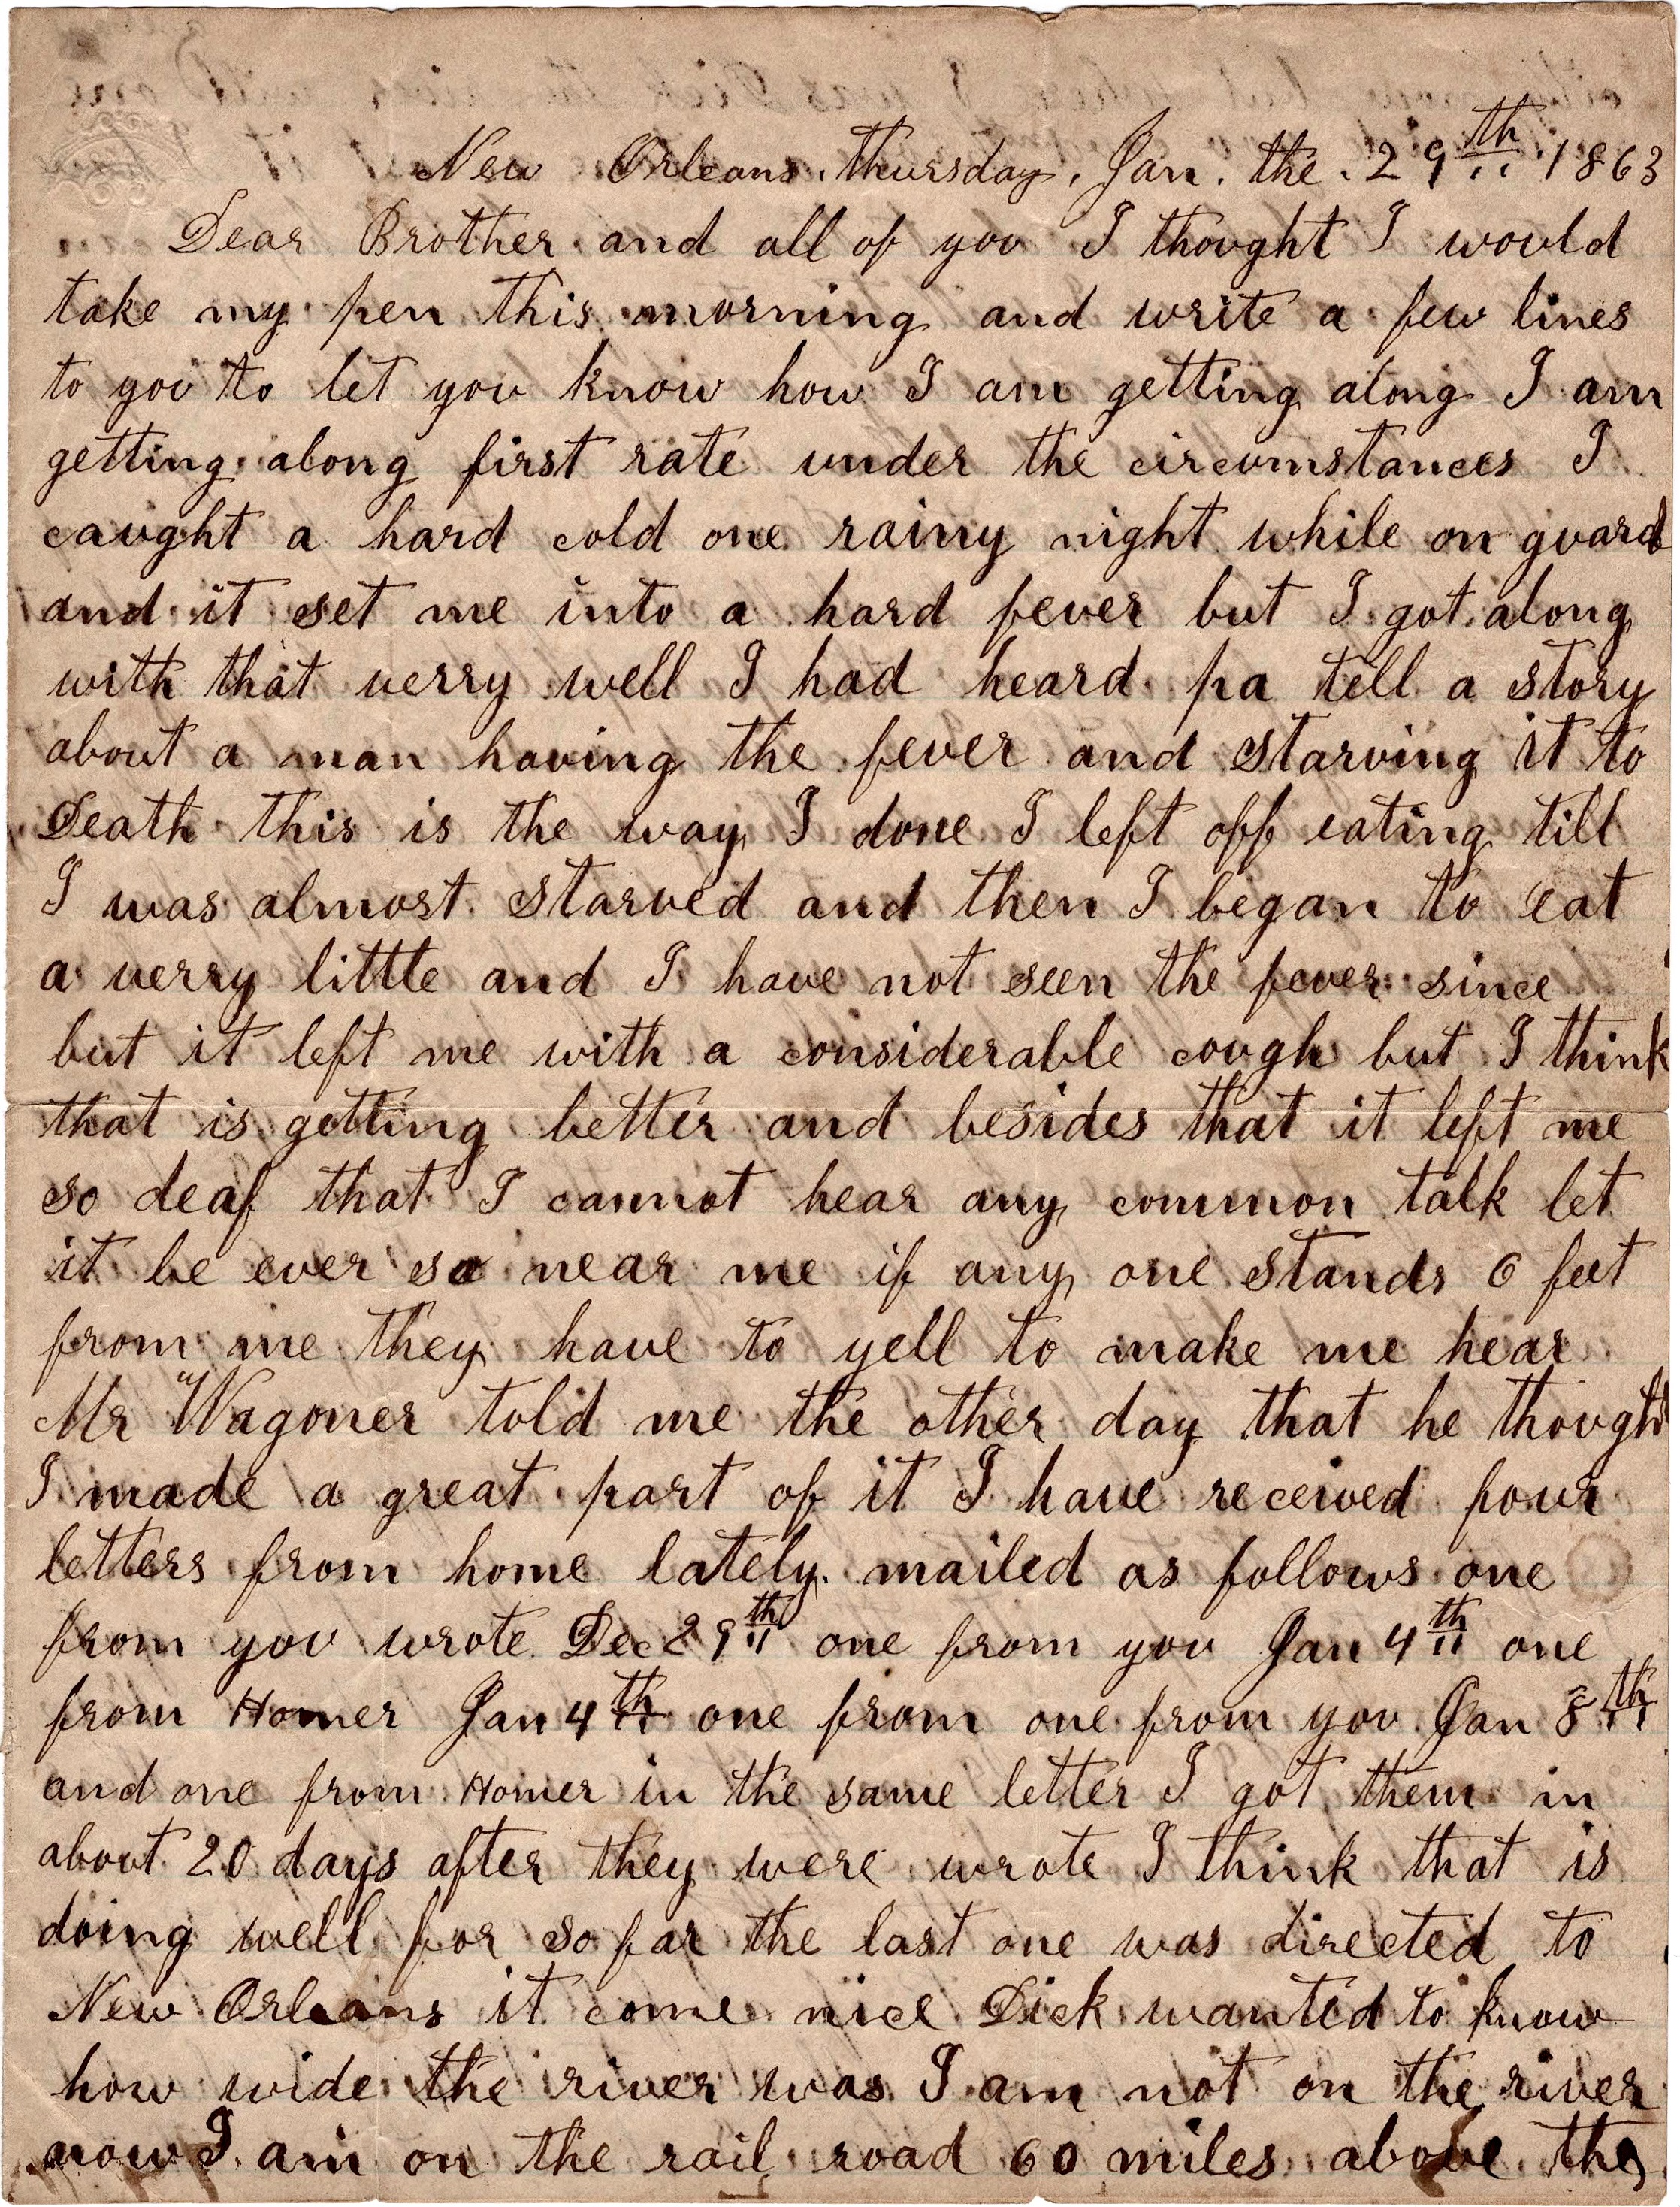 New Orleans. Thursday, Jan. the. 29th 1863
Dear Brother and all of you I thought I would
take my pen this morning and write a few lines
to you to let you know how I am getting along I am
getting along first rate under the circumstances I
caught a hard cold one rainy night while on guard
and it set me into a hard fever but I got along
with that verry well I had heard pa tell a story
about a man having the fever and starving it to
Death this is the way I done I left off eating till
I was almost starved and then I began to eat
a verry little and I have not seen the fever since
but it left me with a considerable cough but I think
that is getting better and besides that it left me
so deaf that I cannot hear any common talk let
it be ever so near me if any one stands 6 feet
from me they have to yell to make me hear
Mr Wagoner told me the other day that he thought
I made a great part of it I have received four
letters from home lately. mailed as follows one
from you wrote Dec 29th one from you Jan 4th one
from Homer Jan 4th one from one from you Jan 8th
and one from Homer in the same letter I got them in
about 20 days after they were wrote I think that is
doing well for so far the last one was directed to
New Orleans it come nice Dick wanted to know
how wide the river was I am not on the river
now I am on the rail road 60 miles above the